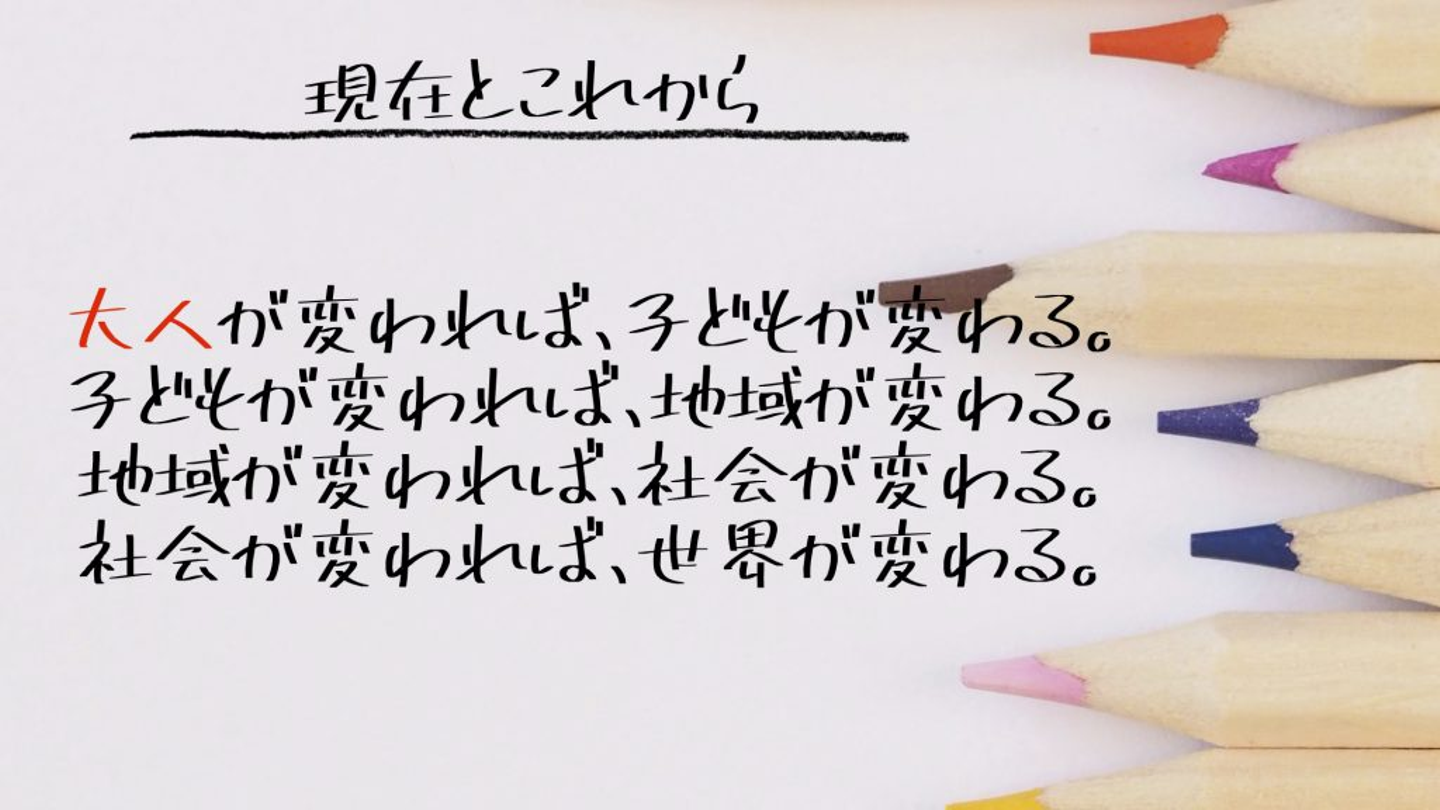 現在とこれから
大人が変われば、子どもが変わる。
子どもが変われば、地域が変わる。
地域が変われば、社会が変わる。
社会が変われば、世界が変わる。